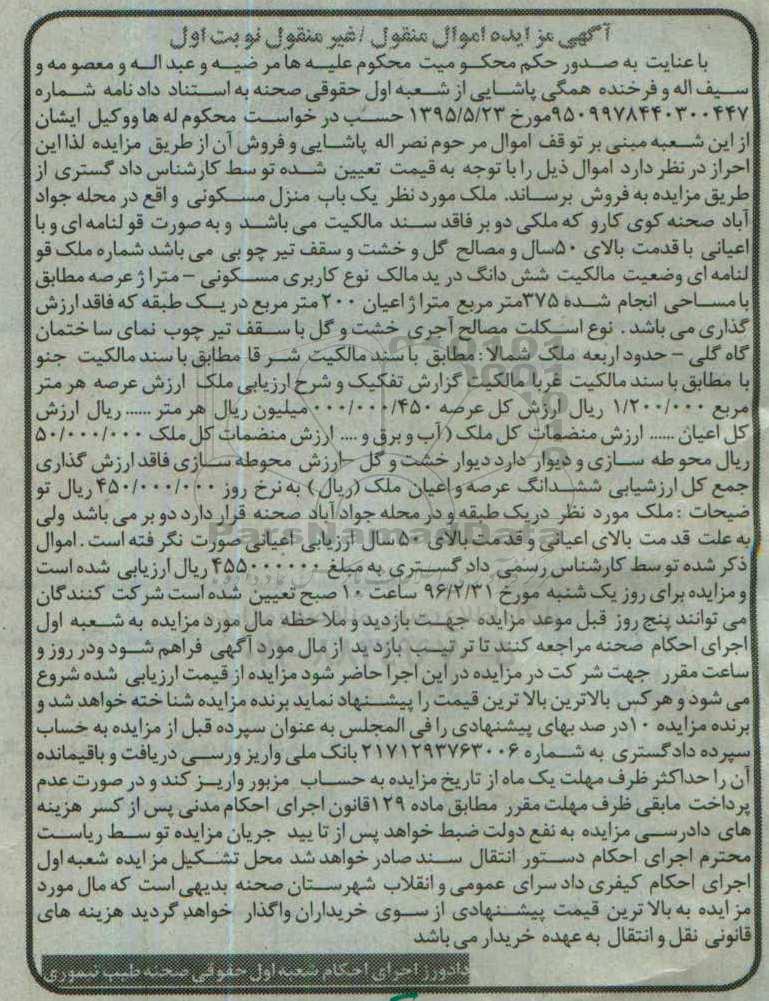 آگهی مزایده اموال منقول /غیر منقول نوبت اول
با عنایت به صدور حکم محکومیت محکوم علیه ها مرضیه و عبداله و معصومه و
سیف اله و فرخنده همگی پاشایی از شعبه اول حقوقی صحنه به استناد دادنامه شماره
۹۵۰۹۹۷۸۴۴۰۳۰۰۴۴۷ مورخ ۱۳۹۵/۵/۲۳ حسب درخواست محکوم له ها ووکیل ایشان
از این شعبه مبنی بر توقف اموال مرحوم نصراله پاشایی و فروش آن از طریق مزایده لذا این
احراز در نظر دارد اموال ذیل را با توجه به قیمت تعیین شده توسط کارشناس دادگستری از
طریق مزایده به فروش برساند. ملک مورد نظر یک باب منزل مسکونی واقع در محله جواد
آباد صحنه کوی کارو که ملکی دو بر فاقد سند مالکیت می باشد و به صورت قولنامه ای و با
اعیانی با قدمت بالای ۵۰سال و مصالح گل و خشت و سقف تیر چوبی می باشد شماره ملک قو
لنامه ای وضعیت مالکیت شش دانگ در ید مالک نوع کاربری مسکونی – متراژ عرصه مطابق
با مساحی انجام شده ۳۷۵متر مربع متراژ اعیان ۲۰۰ متر مربع در یک طبقه که فاقد ارزش
گذاری می باشد . نوع اسکلت مصالح آجری خشت و گل با سقف تیر چوب نمای ساختمان
گاه گلی – حدود اربعه ملک شمالا : مطابق با سند مالکیت شرقا مطابق با سند مالکیت جنو
با مطابق با سند مالکیت غربا مالکیت گزارش تفکیک و شرح ارزیابی ملک ارزش عرصه هر متر
مربع ۱/۲۰۰/۰۰۰ ریال ارزش کل عرصه ۰۰۰/۰۰۰/۴۵۰ میلیون ریال هر متر ...... ریال ارزش
کل اعیان ...... ارزش منضمات کل ملک ( آب و برق و .... ارزش منضمات کل ملک ۵۰/۰۰۰/۰۰۰
ریال محوطه سازی و دیوار دارد دیوار خشت و گل –ارزش محوطه سازی فاقد ارزش گذاری
جمع کل ارزشیابی ششدانگ عرصه و اعیان ملک (ریال) به نرخ روز ۴۵۰/۰۰۰/۰۰۰ ریال تو
ضیحات : ملک مورد نظر در یک طبقه و در محله جواد آباد صحنه قرار دارد دو بر می باشد ولی
به علت قدمت بالای اعیانی و قدمت بالای ۵۰ سال ارزیابی اعیانی صورت نگرفته است . اموال
ذکر شده توسط کارشناس رسمی دادگستری به مبلغ ۴۵۵۰۰۰۰۰۰ ریال ارزیابی شده است
و مزایده برای روز یک شنبه مورخ ۹۶/۲/۳۱ ساعت ۱۰ صبح تعیین شده است شرکت کنندگان
می توانند پنج روز قبل موعد مزایده جهت بازدید و ملاحظه مال مورد مزایده به شعبه اول
اجرای احکام صحنه مراجعه کنند تا ترتیب بازدید از مال مورد آگهی فراهم شود ودر روز و
ساعت مقرر جهت شرکت در مزایده در این اجرا حاضر شود مزایده از قیمت ارزیابی شده شروع
می شود و هر کس بالاترین بالاترین قیمت را پیشنهاد نماید برنده مزایده شناخته خواهد شد و
برنده مزایده ۱۰در صد بهای پیشنهادی را فی المجلس به عنوان سپرده قبل از مزایده به حساب
سپرده دادگستری به شماره ۲۱۷۱۲۹۳۷۶۳۰۰۶ بانک ملی واریز ورسی دریافت و باقیمانده
آن را حداکثر ظرف مهلت یک ماه از تاریخ مزایده به حساب مزبور واریز کند و در صورت عدم
پرداخت مابقی ظرف مهلت مقرر مطابق ماده ۱۲۹قانون اجرای احکام مدنی پس از کسر هزینه
های دادرسی مزایده به نفع دولت ضبط خواهد پس از تایید جریان مزایده توسط ریاست
محترم اجرای احکام دستور انتقال سند صادر خواهد شد محل تشکیل مزایده شعبه اول
اجرای احکام کیفری دادسرای عمومی و انقلاب شهرستان صحنه بدیهی است که مال مورد
مزایده به بالاترین قیمت پیشنهادی از سوی خریداران واگذار خواهد گردید هزینه های
قانونی نقل و انتقال به عهده خریدار می باشد
دادورز اجرای احکام شعبه اول حقوقی صحنه طیب تیموری